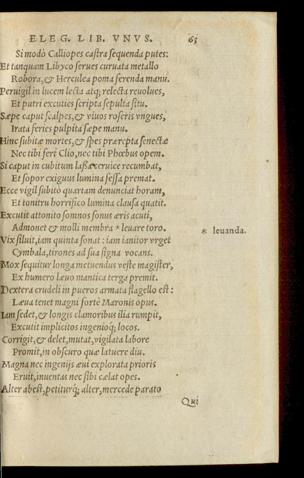 ELEG. LIB. VNVS. 63
Si modò Calliopes castra sequenda putes:
Et tanquam Libyco serues curuata metallo
Robora, & Herculea poma ferenda manu.
Peruigil in lucem lecta atq; relecta reuolues,
Et putri excuties scripta sepulta situ.
Sæpe caput scalpes, & viuos roseris vngues,
Irata feries pulpita sæpe manu.
Hinc subitæ mortes, & spes præcepta senectæ
Nec tibi fert Clio, nec tibi Phœbus opem.
Si caput in cubitum lassa ceruice recumbat,
Et sopor exiguus lumina fessa premat.
Ecce vigil subitò quartam denunciat horam,
Et tonitru horrifico lumina clausa quatit.
Excutit attonito somnos sonus æris acuti,
Admonet & molli membra * leuare toro. * leuanda.
Vix siluit, iam quinta sonat: iam ianitor vrget
Cymbala, tirones ad sua signa vocans.
Mox sequitur longa metuendus veste magister,
Ex humero læuo mantica terga premit.
Dextera crudeli in pueros armata flagello est:
Læua tenet magni fortè Maronis opus.
Iam sedet, & longis clamoribus ilia rumpit,
Excutit implicitos ingenioq; locos.
Corrigit, & delet, mutat, vigilata labore
Promit, in obscuro quæ latuere diu.
Magna nec ingenijs æui explorata prioris
Eruit, inuentas nec sibi cælat opes.
Alter abest, petiturq; alter, mercede parato
Qui